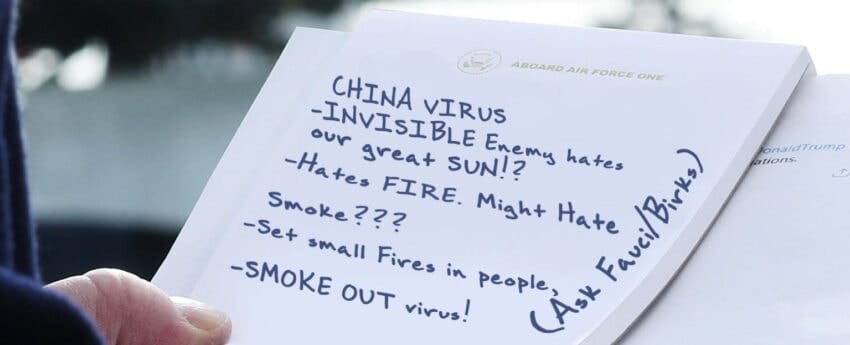 ABOARD AIR FORCE ONE
CHINA VIRUS
-INVISIBLE Enemy hates
our great SUN!?
-Hates FIRE. Might Hate
Smoke???
-Set small Fires in people,
-SMOKE OUT virus!
(Ask Fauci/Birks)
onaldTrump
ations.